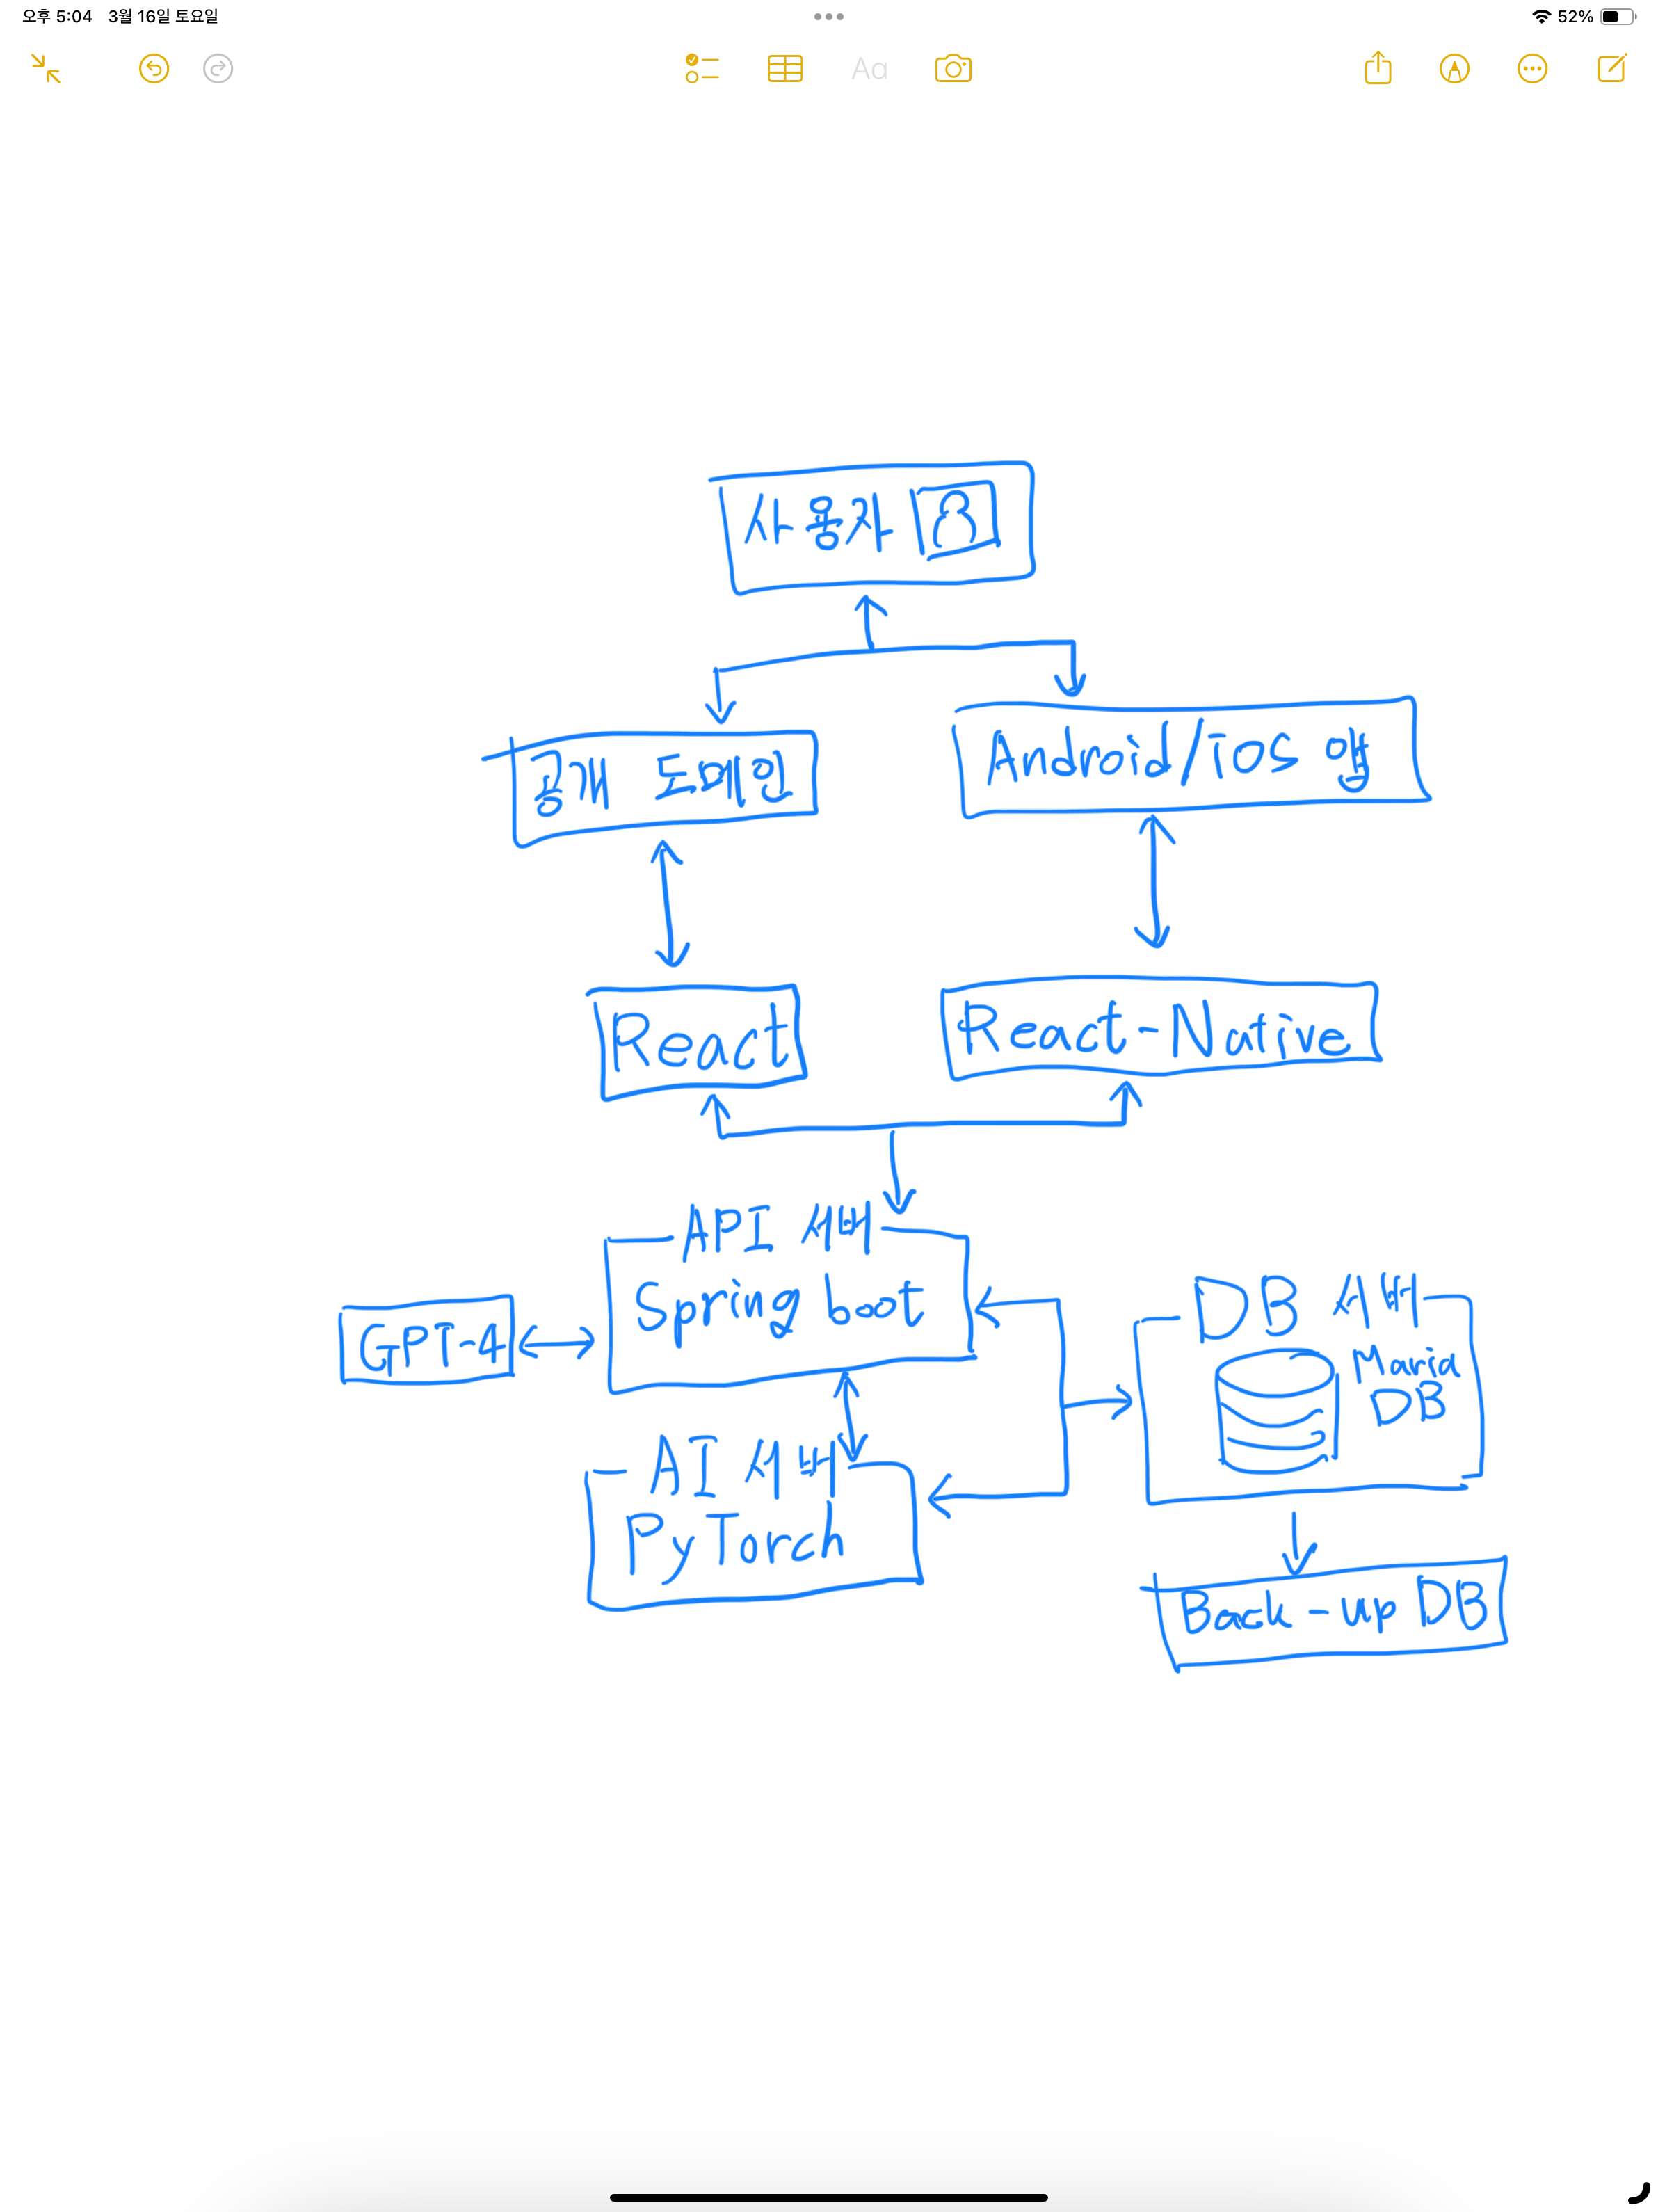 오후 5:04 3월 16일 토요일
52%
Aa
사용자
공개 도메인
Android/ios 앱
React
React-Native
API 서버
Spring boot
GPT-4
DB 서버
Maria
DB
AI 서버
PyTorch
Back-up DB